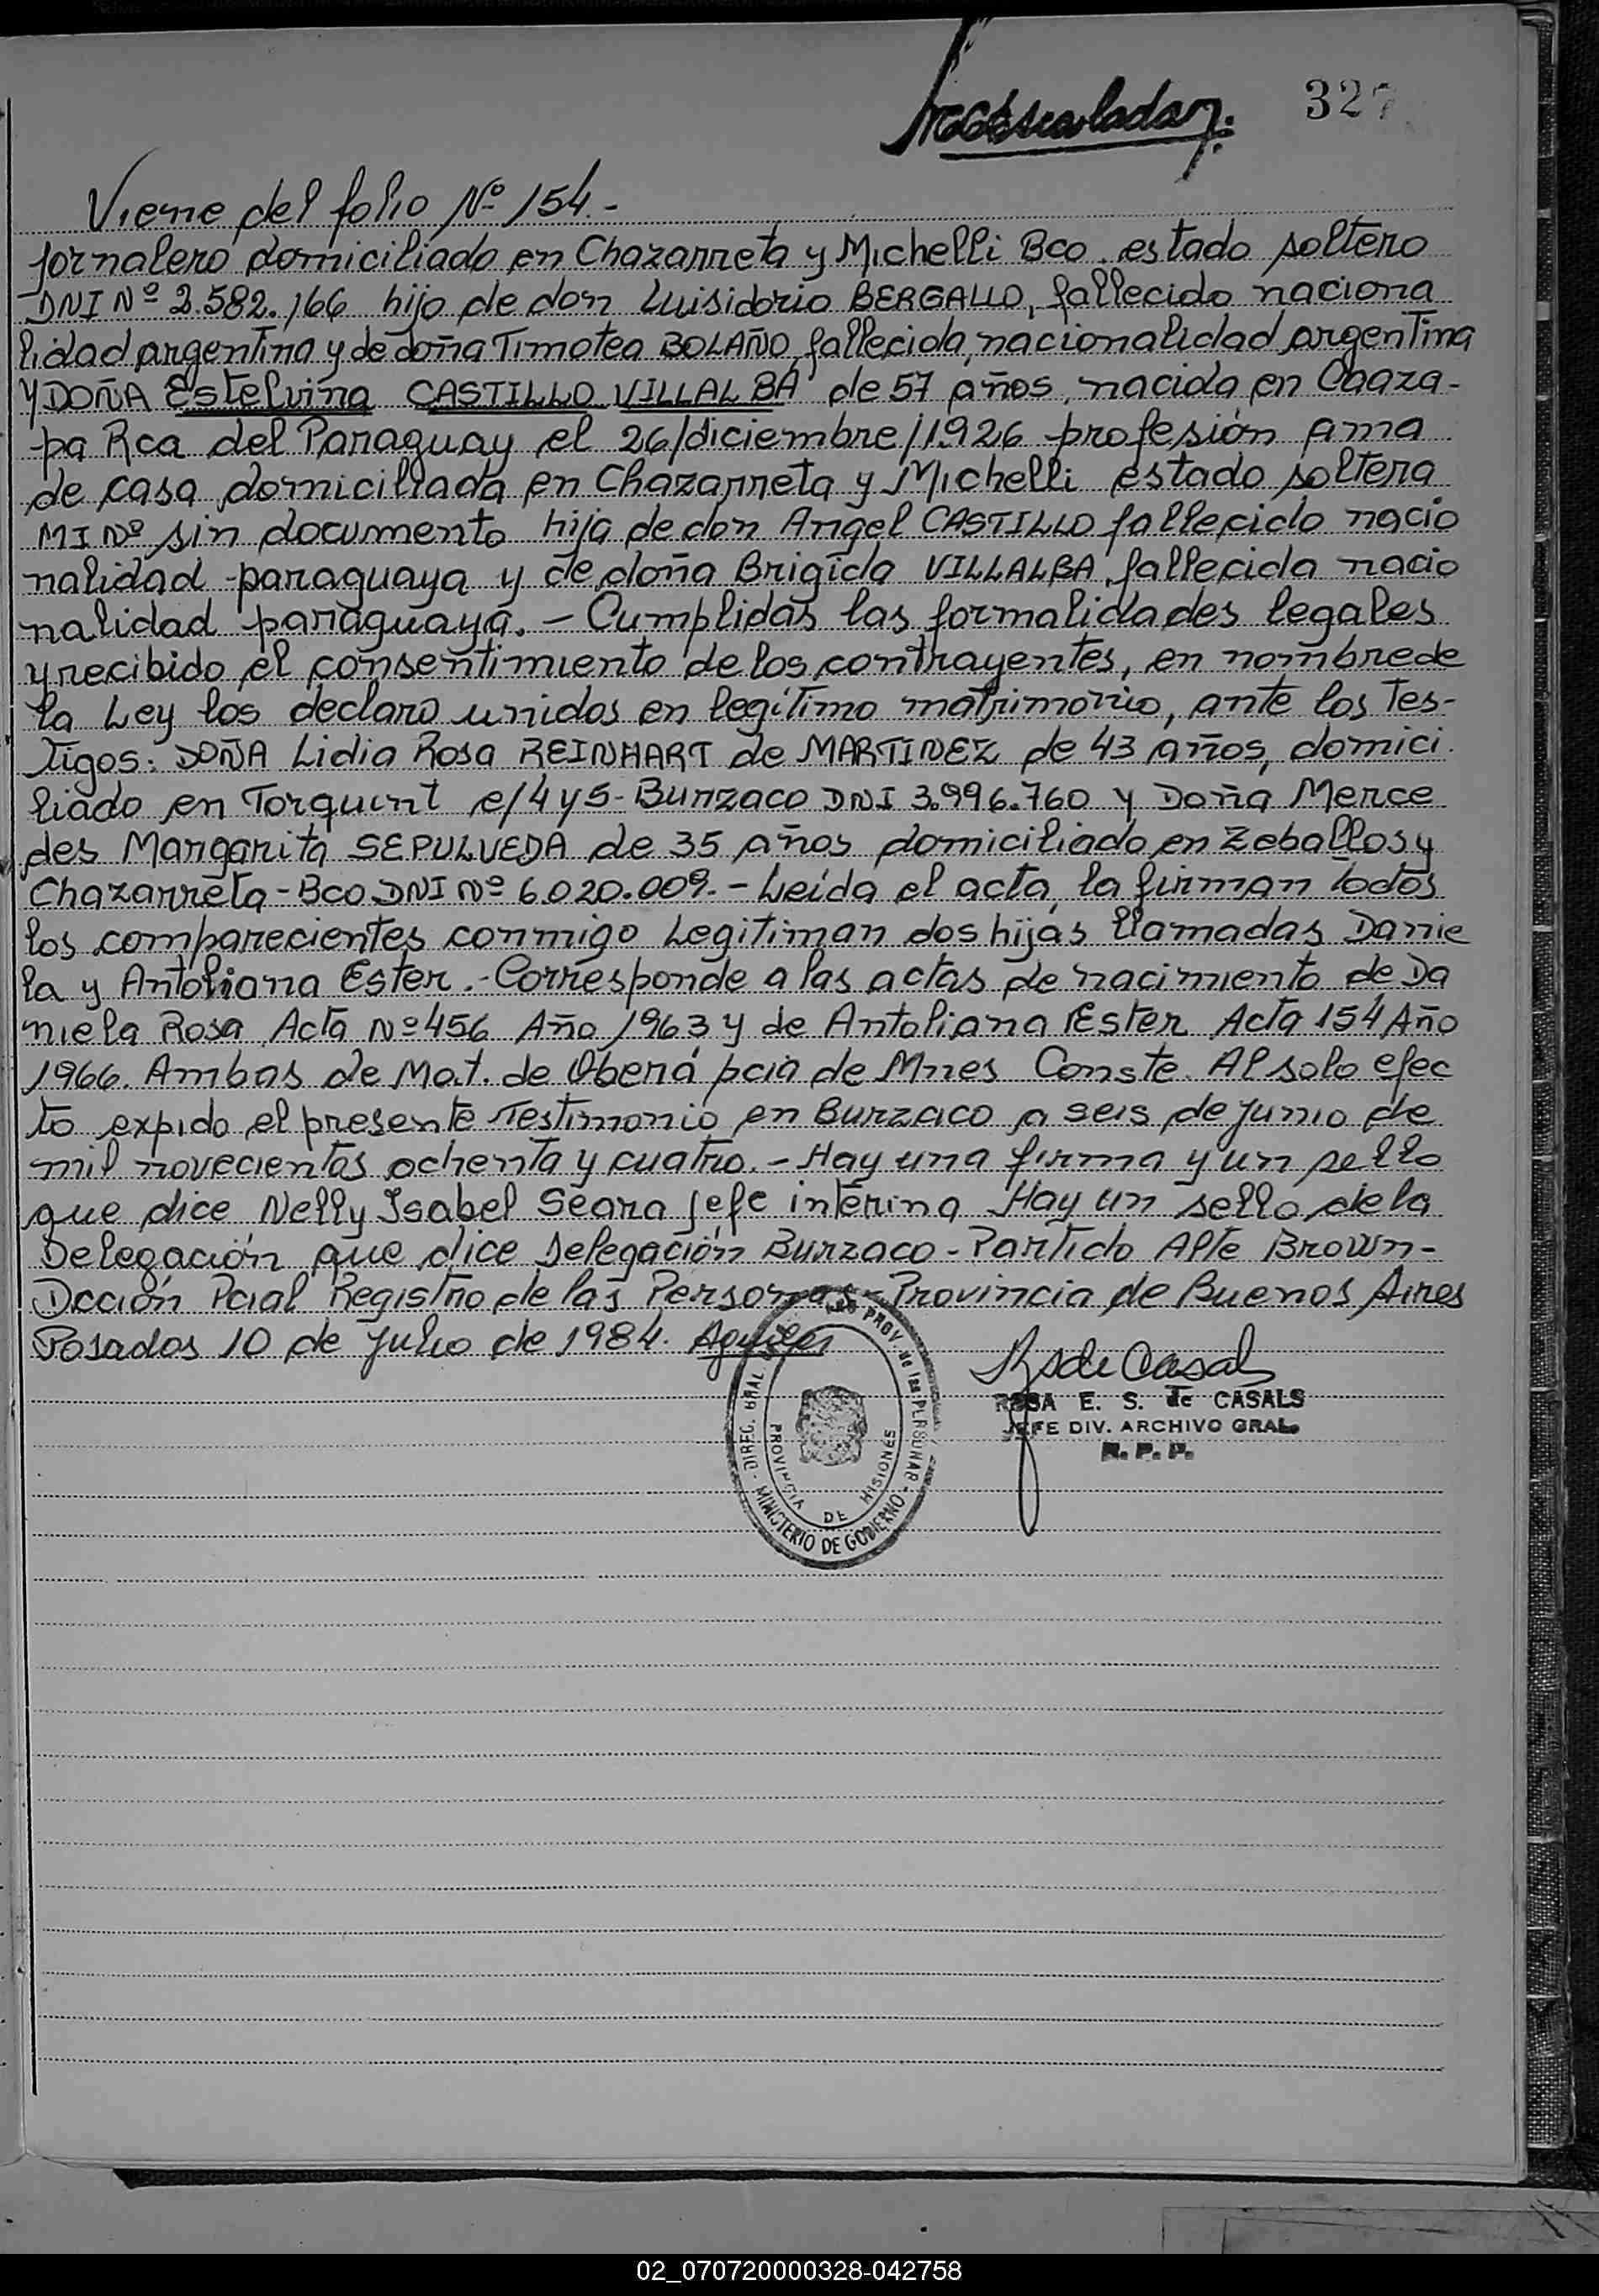 327
Viene del folio Nº 154.-
jornalero domiciliado en Chazarreta y Michelli Bco. estado soltero
DNI Nº 2.582.166 hijo de don Luisidorio BERGALLO, fallecido naciona
lidad argentina y de doña Timotea BOLAÑO, fallecida, nacionalidad argentina
Y DOÑA Estelvina CASTILLO VILLALBA de 57 años, nacida en Caaza-
pa Rca del Paraguay el 26/diciembre/1926 profesión ama
de casa domiciliada en Chazarreta y Michelli estado soltera
MI Nº sin documento hija de don Angel CASTILLO fallecido nacio
nalidad paraguaya y de doña Brigida VILLALBA, fallecida nacio
nalidad paraguaya. - Cumplidas las formalidades legales
y recibido el consentimiento de los contrayentes, en nombre de
la Ley los declaro unidos en legítimo matrimonio, ante los Tes-
tigos: DOÑA Lidia Rosa REINHART de MARTINEZ de 43 años, domici
liado en Torquint e/4 y 5- Burzaco DNI 3.996.760 y Doña Merce
des Margarita SEPULVEDA de 35 años domiciliado en Zeballos y
Chazarreta - Bco DNI Nº 6.020.009. - Leída el acta, la firman todos
los comparecientes conmigo Legitiman dos hijas llamadas Danie
la y Antoliana Ester. - Corresponde a las actas de nacimiento de Da
niela Rosa Acta Nº 456 Año 1963 y de Antoliana Ester Acta 154 Año
1966. Ambas de Mat. de Oberá pcia de Mnes Conste. Al solo efec
to expido el presente Testimonio en Burzaco a seis de junio de
mil novecientos ochenta y cuatro. - Hay una firma y un sello
que dice Nelly Isabel Seara Jefe interina Hay un sello de la
Delegación que dice Delegación Burzaco - Partido Alte Brown-
Dcción Pcial Registro de las Personas - Provincia de Buenos Aires
Posadas 10 de Julio de 1984.
DIREC. GRAL PROV. de las PERSONAS
PROVINCIA DE MISIONES
MINISTERIO DE GOBIERNO
R s de Casals
ROSA E. S. de CASALS
JEFE DIV. ARCHIVO GRAL.
R. P. P.
02_070720000328-042758